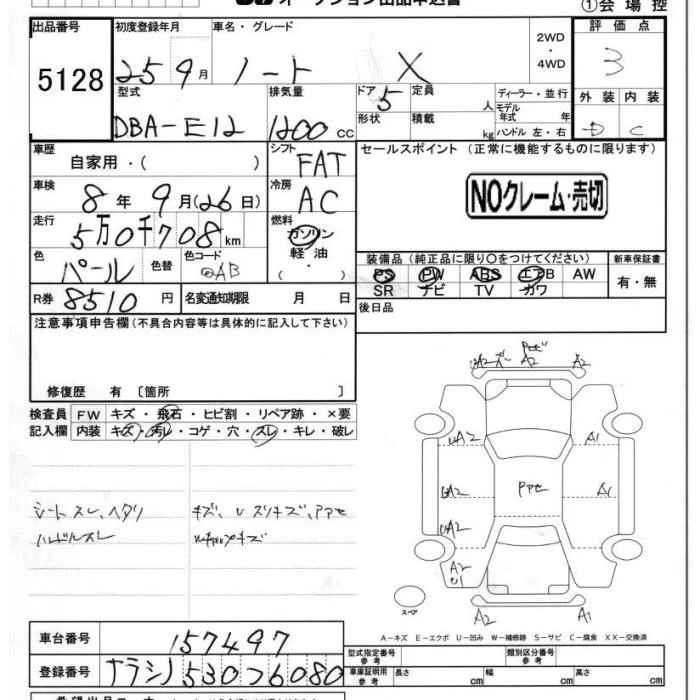 オークション出品申込書
①会場控
出品番号 初度登録年月 車名・グレード 2WD・4WD 評価点
5128 25 9月 ノート X 3
型式 排気量 ドア 5 定員 人 ディーラー・並行 外装 内装
DBA-E12 1200 cc 形状 積載 kg モデル年式 年 ハンドル 左・右 D C
車歴 自家用・( ) シフト FAT セールスポイント (正常に機能するものに限ります)
車検 8年 9月(26日) 冷房 AC NOクレーム・売切
走行 5万0千708km 燃料 ガソリン 軽油・( )
色 パール 色替 色コード QAB
装備品(純正品に限り○をつけてください) 新車保証書
PS PW ABS エアB AW 有・無
SR ナビ TV カワ
R券 8510円 名変通知期限 月 日 後日品
注意事項申告欄(不具合内容等は具体的に記入して下さい)
修復歴 有 〔箇所 〕
検査員 FW キズ・飛石・ヒビ割・リペア跡・×要
記入欄 内装 キズ・汚レ・コゲ・穴・スレ・キレ・破レ
シートスレ、ヘタリ キズ、Uズリキズ、Pアセ
ハンドルスレ
A2 A2
UA2 A1
A2 A1
UA2
A2
U1
Pアセ
スペア
A2 A1
A-キズ E-エクボ U-凹み W-補修跡 S-サビ C-腐食 XX-交換済
車台番号 157497 型式指定番号 参考 類別区分番号 参考
登録番号 ナラシノ530ひ6080 車庫証明用 参考 長さ cm 幅 cm 高さ cm